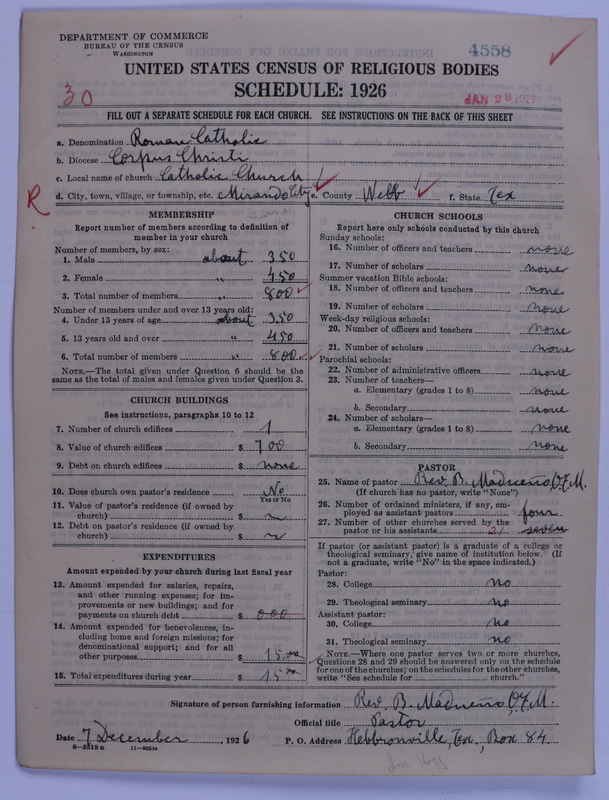 DEPARTMENT OF COMMERCE
BUREAU OF THE CENSUS
WASHINGTON
4558
UNITED STATES CENSUS OF RELIGIOUS BODIES
SCHEDULE: 1926
30
JAN 28 1927
FILL OUT A SEPARATE SCHEDULE FOR EACH CHURCH. SEE INSTRUCTIONS ON THE BACK OF THIS SHEET
a. Denomination Roman Catholic
b. Diocese Corpus Christi
c. Local name of church Catholic Church
R
d. City, town, village, or township, etc. Mirando City e. County Webb f. State Tex
MEMBERSHIP
Report number of members according to definition of member in your church
Number of members, by sex:
1. Male about 350
2. Female " 450
3. Total number of members " 800
Number of members under and over 13 years old:
4. Under 13 years of age about 350
5. 13 years old and over " 450
6. Total number of members " 800
NOTE.—The total given under Question 6 should be same as the total of males and females given under Question 3.
CHURCH BUILDINGS
See instructions, paragraphs 10 to 12
7. Number of church edifices 1
8. Value of church edifices $ 700
9. Debt on church edifices $ none
10. Does church own pastor's residence No
Yes or No
11. Value of pastor's residence (if owned by church) $
12. Debt on pastor's residence (if owned by church) $
EXPENDITURES
Amount expended by your church during last fiscal year
13. Amount expended for salaries, repairs, and other running expenses; for improvements or new buildings; and for payments on church debt $ 000
14. Amount expended for benevolences, including home and foreign missions; for denominational support; and for all other purposes $ 15.00
15. Total expenditures during year $ 15.00
CHURCH SCHOOLS
Report here only schools conducted by this church
Sunday schools:
16. Number of officers and teachers none
17. Number of scholars none
Summer vacation Bible schools:
18. Number of officers and teachers none
19. Number of scholars none
Week-day religious schools:
20. Number of officers and teachers none
21. Number of scholars none
Parochial schools:
22. Number of administrative officers none
23. Number of teachers—
a. Elementary (grades 1 to 8) none
b. Secondary none
24. Number of scholars—
a. Elementary (grades 1 to 8) none
b. Secondary none
PASTOR
25. Name of pastor Rev. B. Madueño, O.F.M.
(If church has no pastor, write "None")
26. Number of ordained ministers, if any, employed as assistant pastors four
27. Number of other churches served by the pastor or his assistants 21 seven
If pastor (or assistant pastor) is a graduate of a college or theological seminary, give name of institution below. (If not a graduate, write "No" in the space indicated.)
Pastor:
28. College no
29. Theological seminary no
Assistant pastor:
30. College no
31. Theological seminary no
NOTE.—Where one pastor serves two or more churches, Questions 28 and 29 should be answered only on the schedule for one of the churches; on the schedules for the other churches, write "See schedule for ........ church."
Signature of person furnishing information Rev. B. Madueño, O.F.M.
Official title Pastor
Date 7 December, 1926 P. O. Address Hebbronville, Tex., Box 84.
8—5318a 11—9034a
Jim Hogg